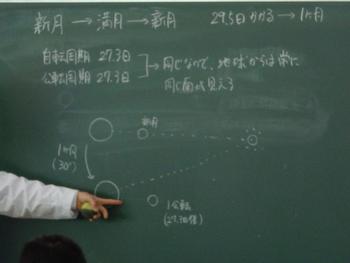 新月 → 満月 → 新月 29.5日かかる → 1ヶ月
自転周期 27.3日
公転周期 27.3日
同じなので、地球からは常に
同じ面が見える
新月
1ヶ月
(30°)
1公転
(27.3日後)